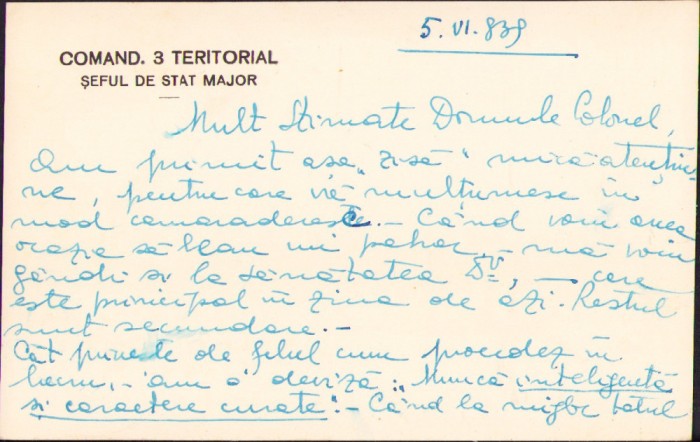 5. VI. 939
COMAND. 3 TERITORIAL
ȘEFUL DE STAT MAJOR
Mult Stimate Domnule Colonel,
Am primit așa „zisă" mică atențiu-
ne, pentru care vă mulțumesc în
mod camaraderesc. – Când voiu avea
ocazie să beau un pahar – mă voiu
gândi și la sănătatea Dv, – care
este principal în ziua de azi. Restul
sunt secundare. –
Cât privește de felul cum procedez în
lucru, – am o deviză: „Muncă inteligentă
și caractere curate". – Când la mijloc totul